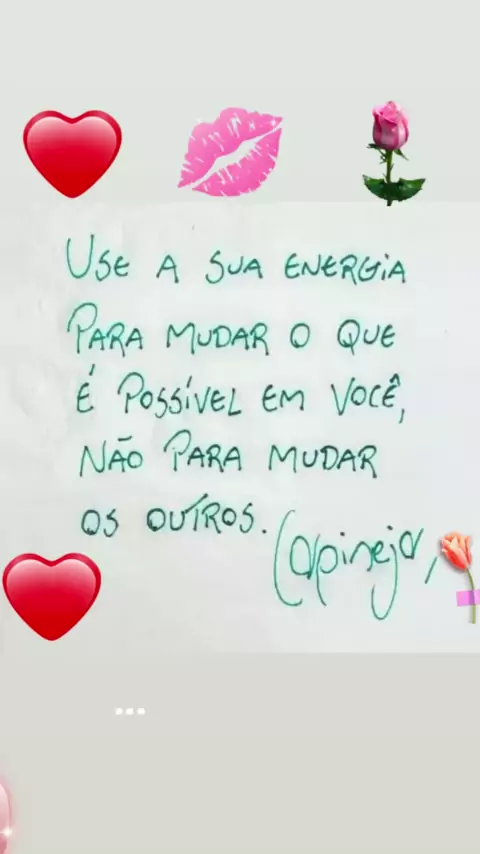 USE A SUA ENERGIA
PARA MUDAR O QUE
É POSSÍVEL EM VOCÊ,
NÃO PARA MUDAR
OS OUTROS.
Carpinejar,
...